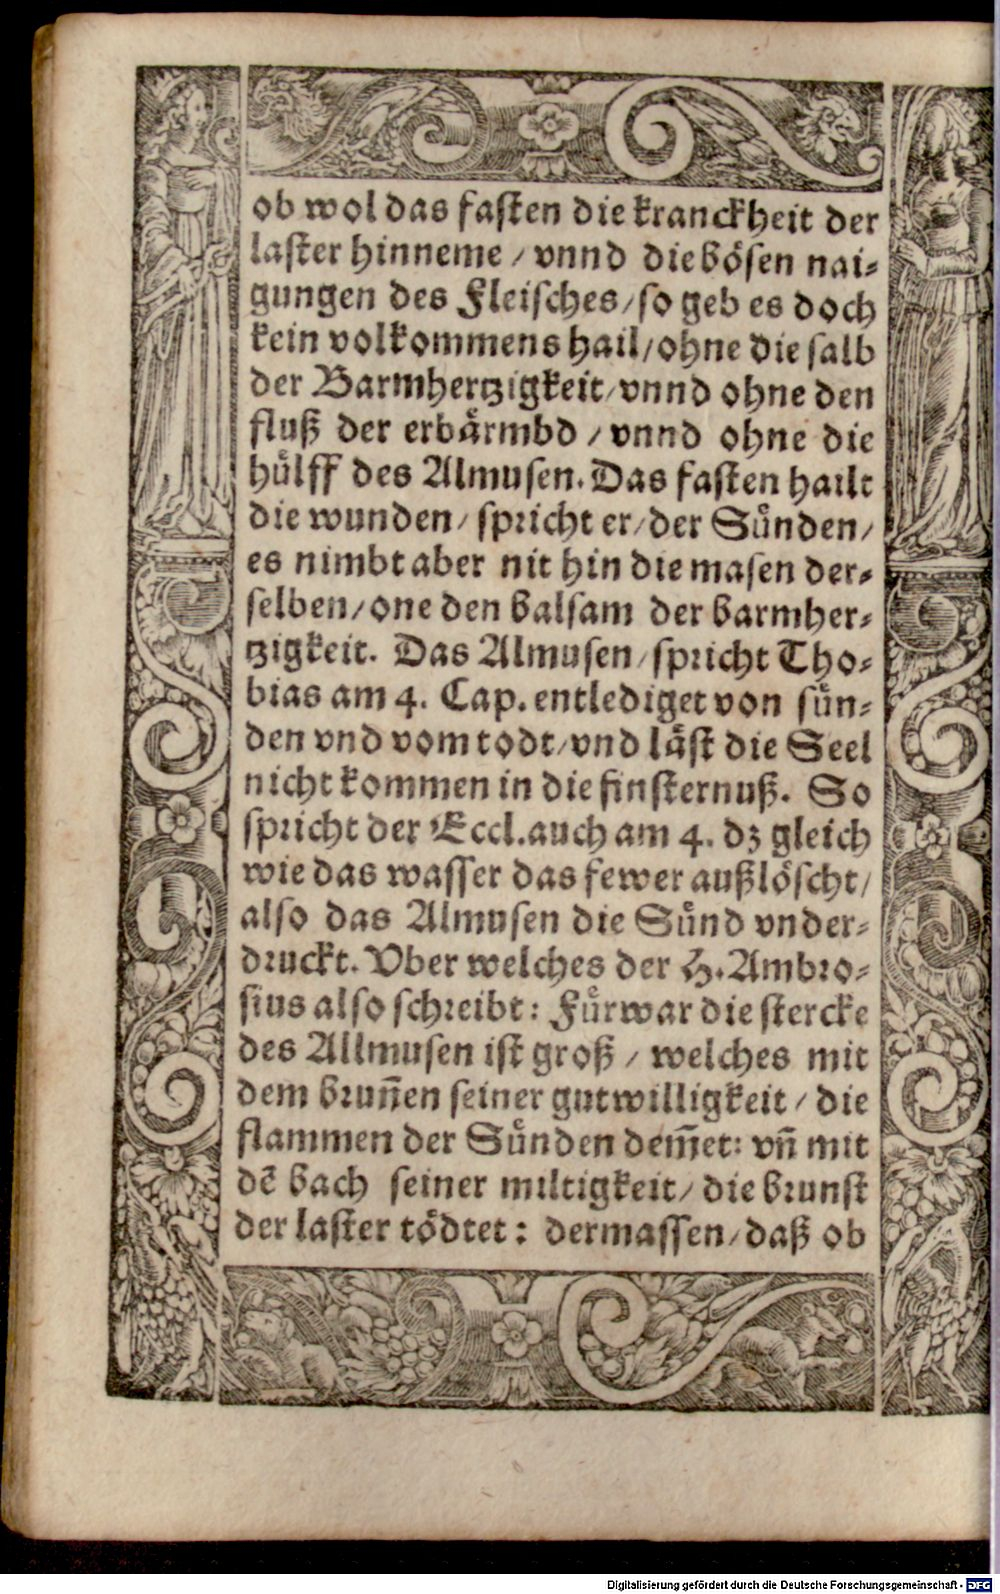 ob wol das fasten die kranckheit der
laster hinneme / vnnd die bösen nai⸗
gungen des Fleisches / so geb es doch
kein volkommens hail / ohne die salb
der Barmhertzigkeit / vnnd ohne den
fluß der erbärmbd / vnnd ohne die
hülff des Almusen. Das fasten hailt
die wunden / spricht er / der Sünden /
es nimbt aber nit hin die masen der⸗
selben / one den balsam der barmher⸗
tzigkeit. Das Almusen / spricht Tho⸗
bias am 4. Cap. entlediget von sün⸗
den vnd vom todt / vnd läst die Seel
nicht kommen in die finsternuß. So
spricht der Eccl. auch am 4. dz gleich
wie das wasser das fewer außlöscht /
also das Almusen die Sünd vnder⸗
druckt. Vber welches der H. Ambro⸗
sius also schreibt: Fürwar die stercke
des Allmusen ist groß / welches mit
dem brun̄en seiner gutwilligkeit / die
flammen der Sünden dem̄et: vn̄ mit
dē bach seiner miltigkeit / die brunst
der laster tödtet: dermassen / daß ob
Digitalisierung gefördert durch die Deutsche Forschungsgemeinschaft - DFG